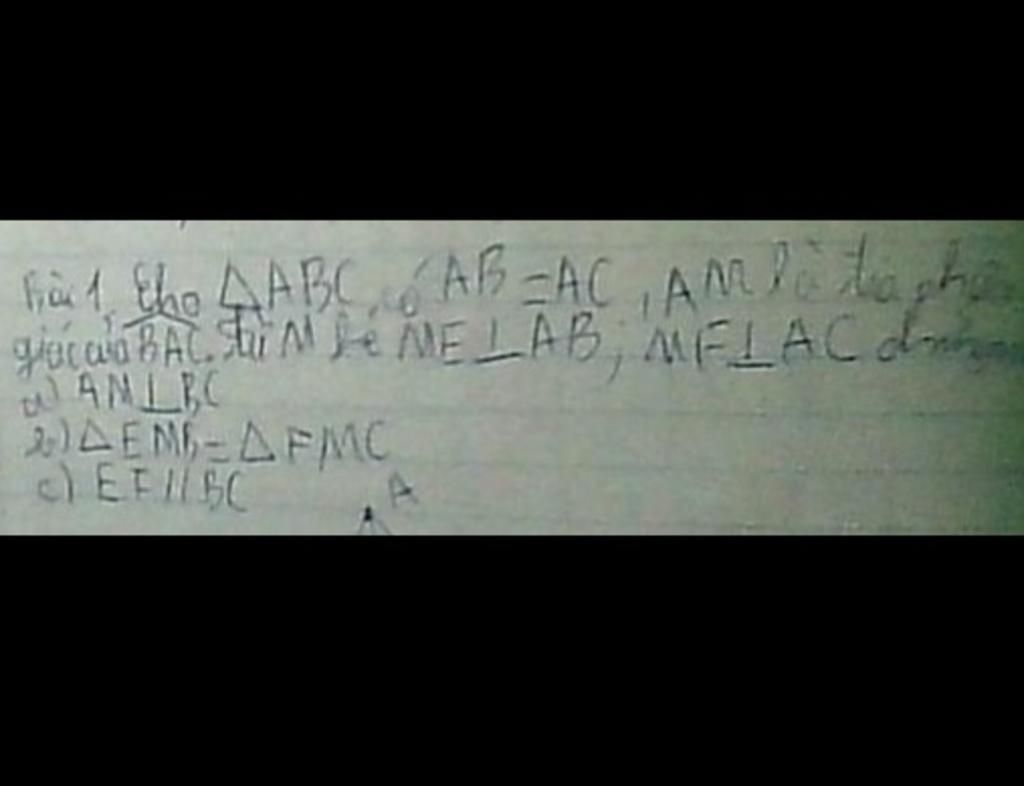 Bài 1, Cho △ABC, có AB=AC, AM là tia phân
giác của BAC. Từ M kẻ ME⊥AB; MF⊥AC
a) AM⊥BC
b) △EMB=△FMC
c) EF//BC
A